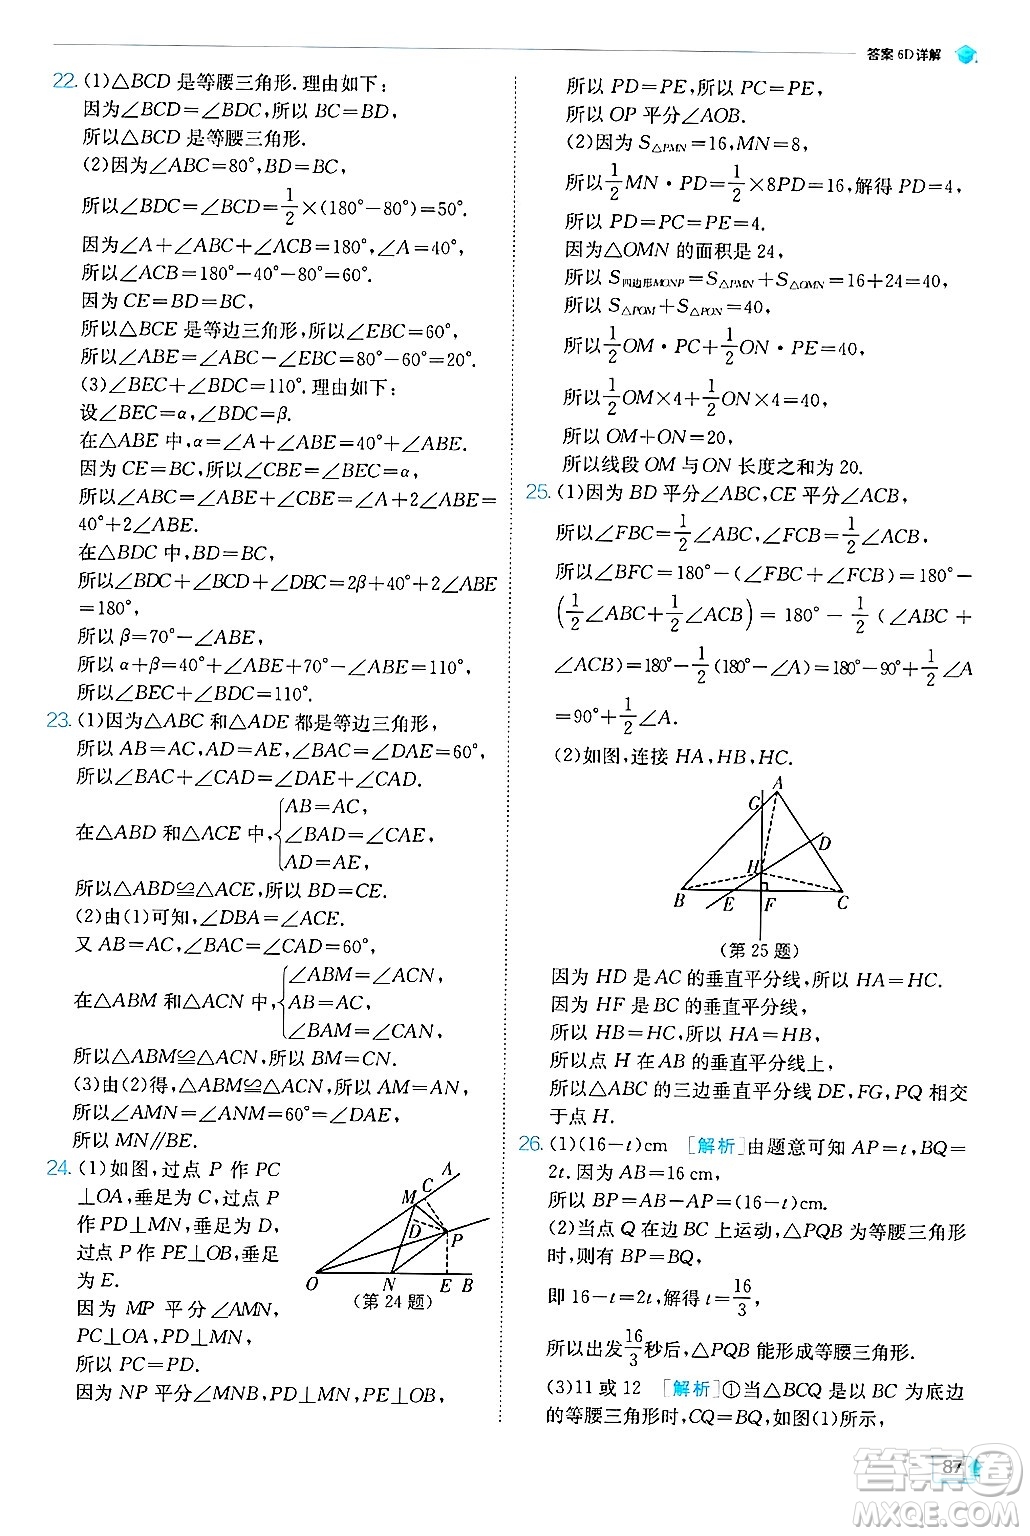 答案 6D 详解
22. (1)△BCD 是等腰三角形. 理由如下:
因为∠BCD=∠BDC,所以 BC=BD,
所以△BCD 是等腰三角形.
(2)因为∠ABC=80°,BD=BC,
所以∠BDC=∠BCD=1/2×(180°-80°)=50°.
因为∠A+∠ABC+∠ACB=180°,∠A=40°,
所以∠ACB=180°-40°-80°=60°.
因为 CE=BD=BC,
所以△BCE 是等边三角形,所以∠EBC=60°,
所以∠ABE=∠ABC-∠EBC=80°-60°=20°.
(3)∠BEC+∠BDC=110°. 理由如下:
设∠BEC=α,∠BDC=β.
在△ABE 中,α=∠A+∠ABE=40°+∠ABE.
因为 CE=BC,所以∠CBE=∠BEC=α,
所以∠ABC=∠ABE+∠CBE=∠ABE+α=
40°+2∠ABE.
在△BDC 中,BD=BC,
所以∠BDC+∠BCD+∠DBC=2β+40°+2∠ABE
=180°,
所以 β=70°-∠ABE,
所以 α+β=40°+∠ABE+70°-∠ABE=110°,
所以∠BEC+∠BDC=110°.
23. (1)因为△ABC 和△ADE 都是等边三角形,
所以 AB=AC,AD=AE,∠BAC=∠DAE=60°,
所以∠BAC+∠CAD=∠DAE+∠CAD.
在△ABD 和△ACE 中,{AB=AC,
∠BAD=∠CAE,
AD=AE,
所以△ABD≌△ACE,所以 BD=CE.
(2)由(1)可知,∠DBA=∠ACE.
又 AB=AC,∠BAC=∠CAD=60°,
在△ABM 和△ACN 中,{∠ABM=∠ACN,
AB=AC,
∠BAM=∠CAN,
所以△ABM≌△ACN,所以 BM=CN.
(3)由(2)得,△ABM≌△ACN,所以 AM=AN,
所以∠AMN=∠ANM=60°=∠DAE,
所以 MN∥BE.
24. (1)如图,过点 P 作 PC
⊥OA,垂足为 C,过点 P
作 PD⊥MN,垂足为 D,
过点 P 作 PE⊥OB,垂足
为 E.
因为 MP 平分∠AMN,
PC⊥OA,PD⊥MN,
所以 PC=PD.
A
C
M
D
P
O
N
E
B
(第 24 题)
因为 NP 平分∠MNB,PD⊥MN,PE⊥OB,
所以 PD=PE,所以 PC=PE,
所以 OP 平分∠AOB.
(2)因为 S△PMN=16,MN=8,
所以1/2MN·PD=1/2×8PD=16,解得 PD=4,
所以 PD=PC=PE=4.
因为△OMN 的面积是 24,
所以 S四边形MONP=S△PMN+S△OMN=16+24=40,
所以 S△POM+S△PON=40,
所以1/2OM·PC+1/2ON·PE=40,
所以1/2OM×4+1/2ON×4=40,
所以 OM+ON=20,
所以线段 OM 与 ON 长度之和为 20.
25. (1)因为 BD 平分∠ABC,CE 平分∠ACB,
所以∠FBC=1/2∠ABC,∠FCB=1/2∠ACB,
所以∠BFC=180°-(∠FBC+∠FCB)=180°-
(1/2∠ABC+1/2∠ACB)=180°-1/2(∠ABC+
∠ACB)=180°-1/2(180°-∠A)=180°-90°+1/2∠A
=90°+1/2∠A.
(2)如图,连接 HA,HB,HC.
A
G
D
H
B
E
F
C
(第 25 题)
因为 HD 是 AC 的垂直平分线,所以 HA=HC.
因为 HF 是 BC 的垂直平分线,
所以 HB=HC,所以 HA=HB,
所以点 H 在 AB 的垂直平分线上,
所以△ABC 的三边垂直平分线 DE,FG,PQ 相交
于点 H.
26. (1)(16-t)cm [解析]由题意可知 AP=t,BQ=
2t. 因为 AB=16 cm,
所以 BP=AB-AP=(16-t)cm.
(2)当点 Q 在边 BC 上运动,△PQB 为等腰三角形
时,则有 BP=BQ,
即 16-t=2t,解得 t=16/3,
所以出发16/3秒后,△PQB 能形成等腰三角形.
(3)11 或 12 [解析]①当△BCQ 是以 BC 为底边
的等腰三角形时,CQ=BQ,如图(1)所示,
87
答案圈
MXQE.COM